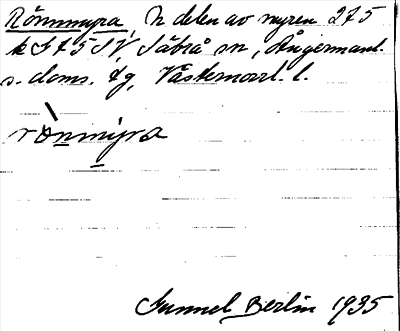 Rönnmyra, N delen av myren 275
k G 75 SV, Säbrå sn, Ångermanl.
s. doms. tg, Västernorrl. l.
rònmýra
Gunnel Berlin 1935